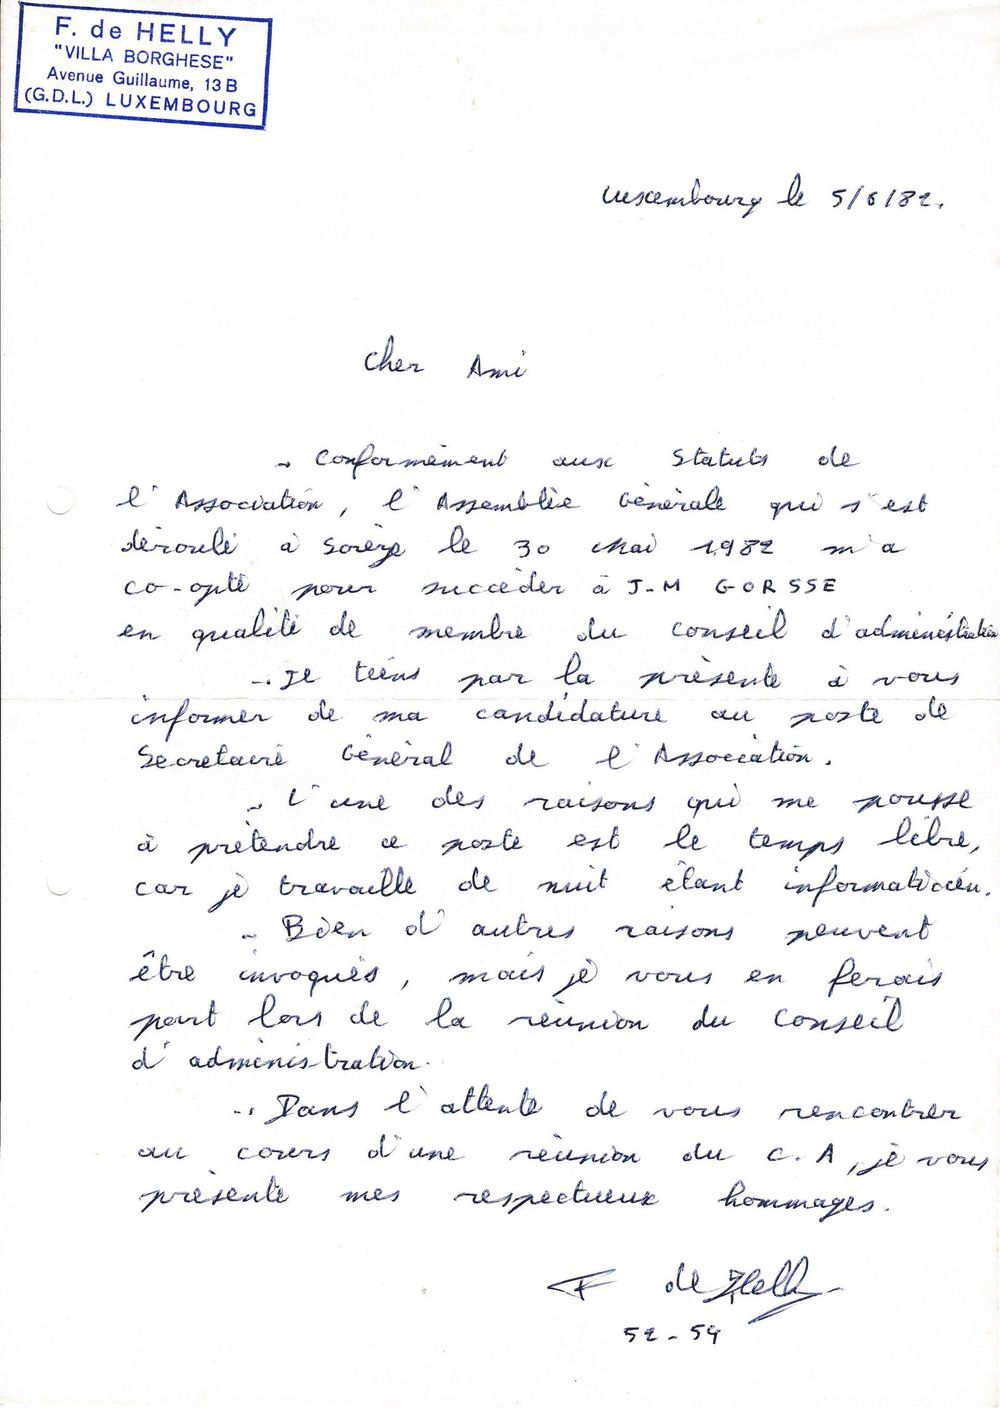 F. de HELLY
"VILLA BORGHESE"
Avenue Guillaume, 13 B
(G.D.L.) LUXEMBOURG
Luxembourg le 5/6/82.
Cher Ami
-. Conformément aux Statuts de
l'Association, l'Assemblée Générale qui s'est
déroulé à Sorèze le 30 Mai 1982 m'a
co-opté pour succéder à J-M GORSSE
en qualité de membre du Conseil d'administration
-. Je tiens par la présente à vous
informer de ma candidature au poste de
Secretaire Général de l'Association.
-. L'une des raisons qui me pousse
à prétendre ce poste est le temps libre,
car je travaille de nuit étant informaticien.
-. Bien d'autres raisons peuvent
être invoqués, mais je vous en ferais
part lors de la réunion du Conseil
d'administration.
-. Dans l'attente de vous rencontrer
au cours d'une réunion du C.A, je vous
présente mes respectueux hommages.
F de Helly
52-54